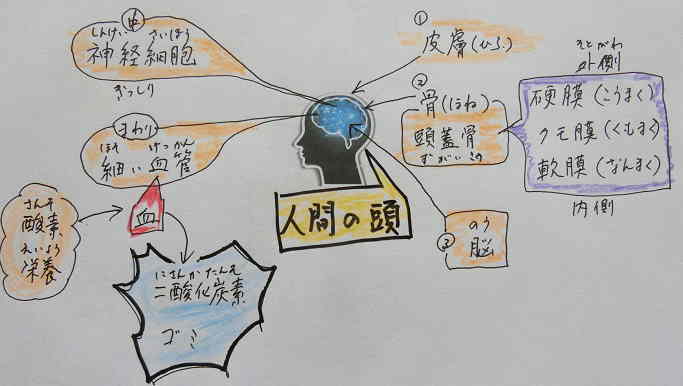 中
しんけい さいほう
神経細胞
ぎっしり
まわり
ほそ けっかん
細い血管
血
さんそ
酸素
えいよう
栄養
にさんかたんそ
二酸化炭素
ゴミ
人間の頭
①
皮膚(ひふ)
②
骨(ほね)
頭蓋骨
ずがいこつ
そとがわ
外側
硬膜(こうまく)
クモ膜(くもまく)
軟膜(なんまく)
内側
③
のう
脳